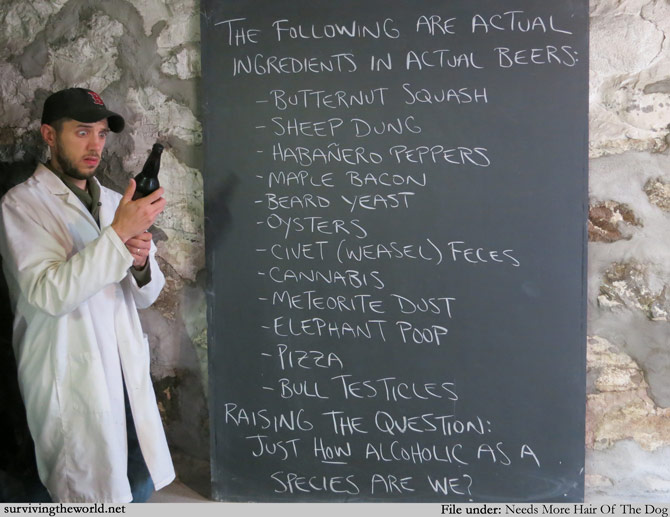 THE FOLLOWING ARE ACTUAL
INGREDIENTS IN ACTUAL BEERS:
- BUTTERNUT SQUASH
- SHEEP DUNG
- HABAÑERO PEPPERS
- MAPLE BACON
- BEARD YEAST
- OYSTERS
- CIVET (WEASEL) FECES
- CANNABIS
- METEORITE DUST
- ELEPHANT POOP
- PIZZA
- BULL TESTICLES
RAISING THE QUESTION:
JUST HOW ALCOHOLIC AS A
SPECIES ARE WE?
survivingtheworld.net
File under: Needs More Hair Of The Dog